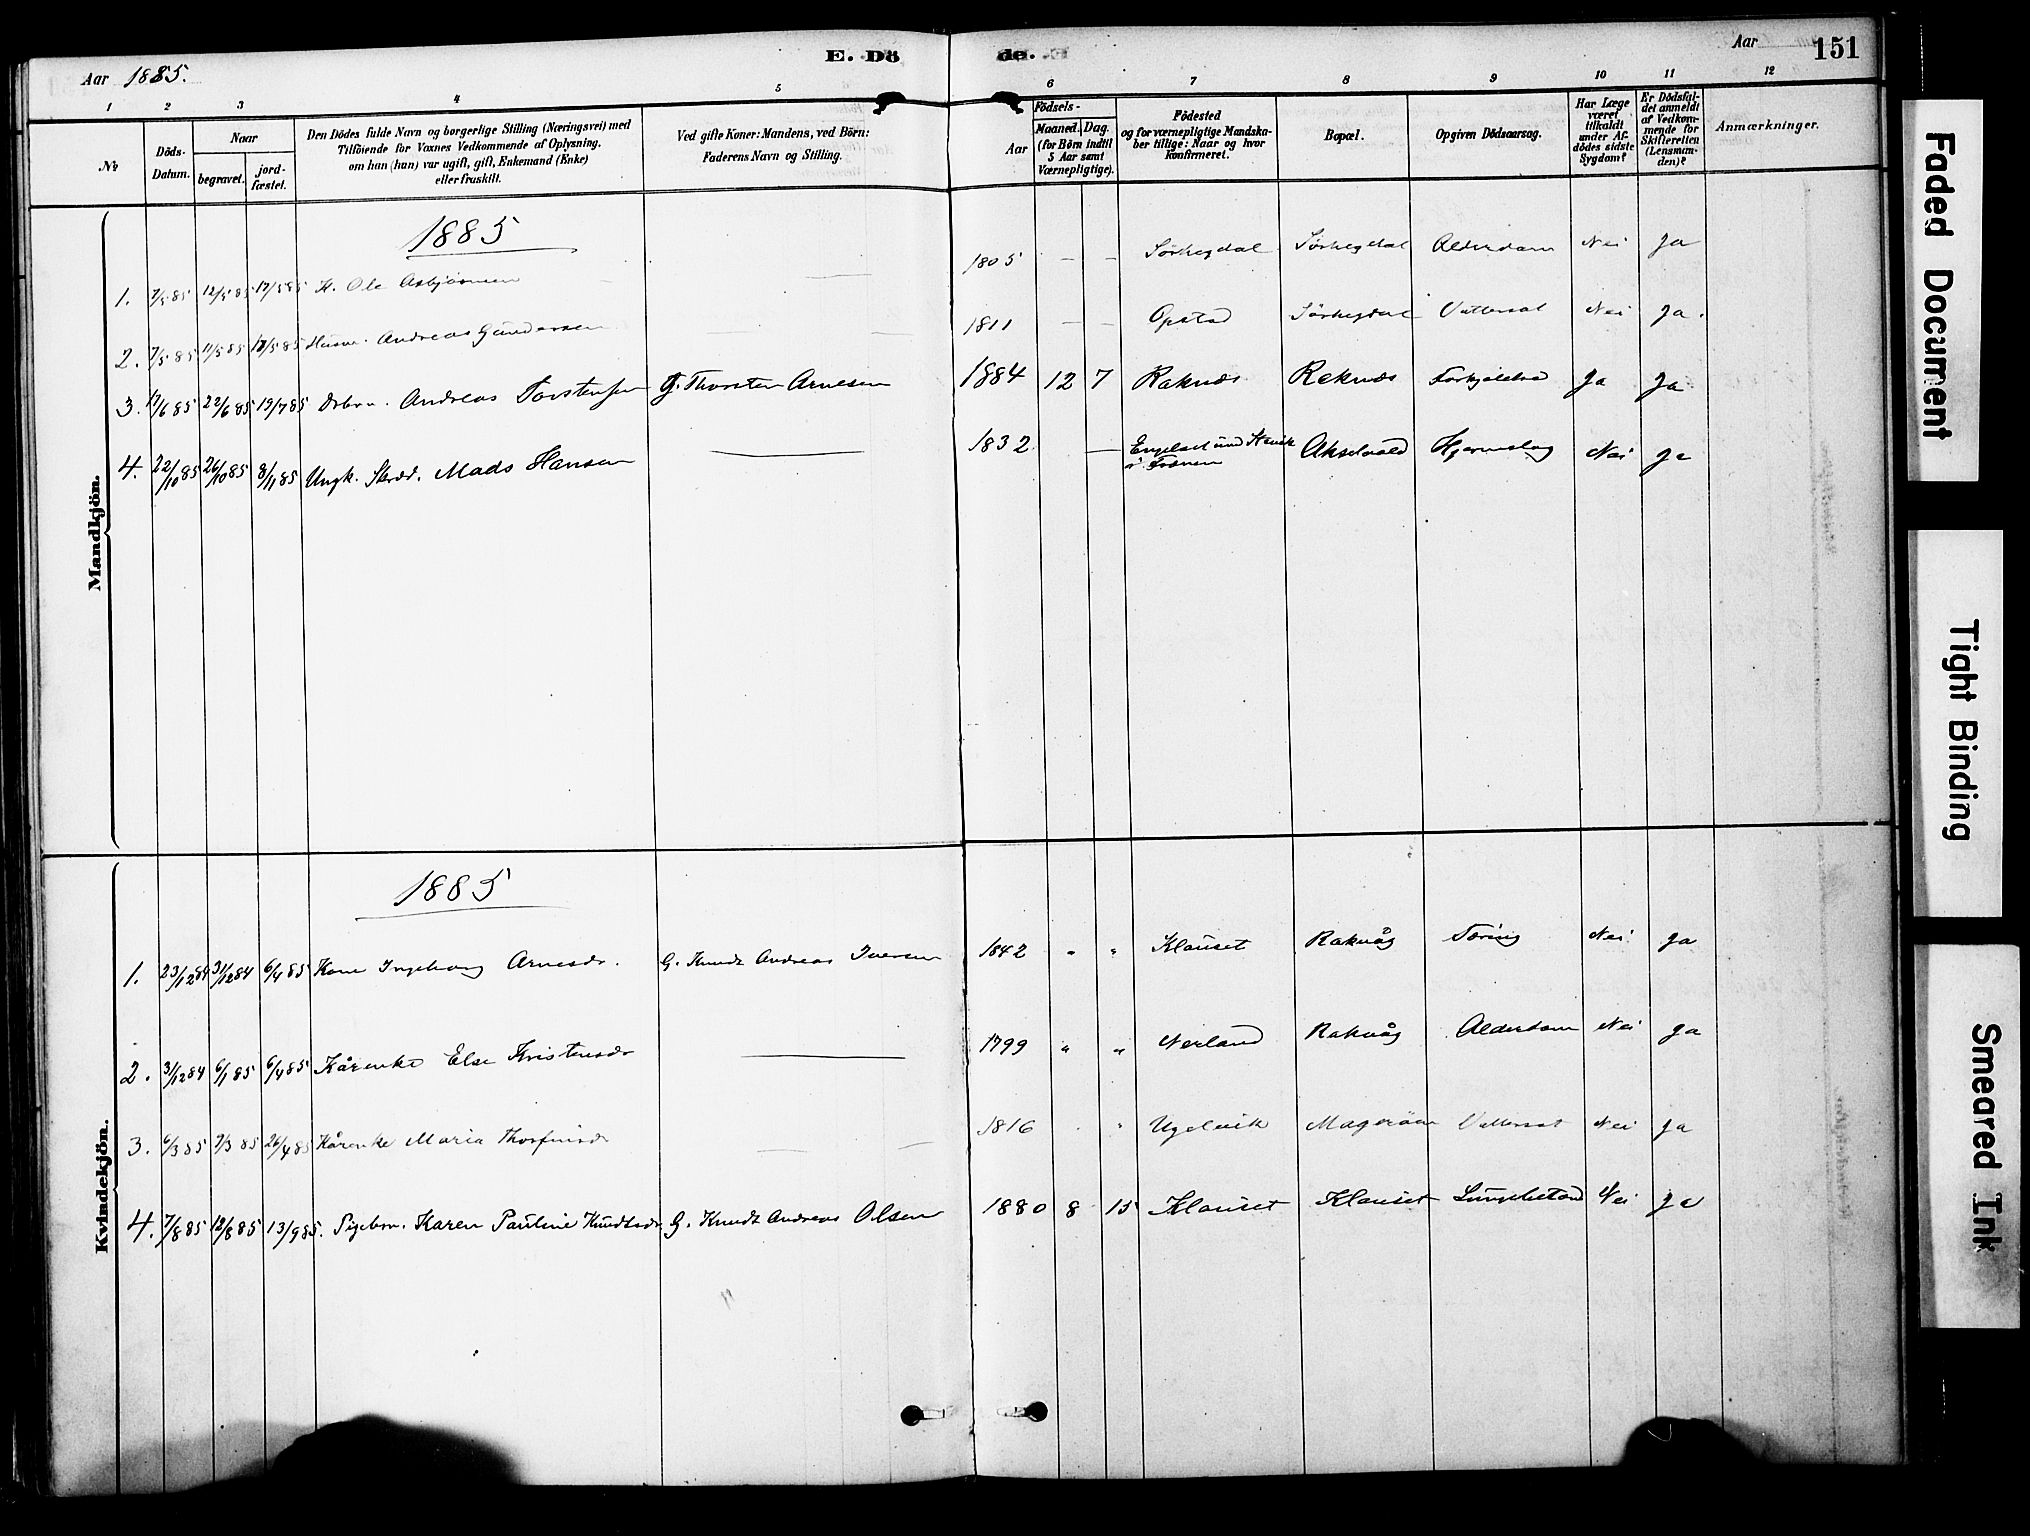 E. Döde.
Aar 1885.
Aar
151
1 2 3 4 5 6 7 8 9 10 11 12
№
Döds-Datum.
Naar
begravet.
jord-fæstet.
Den Dödes fulde Navn og borgerlige Stilling (Næringsvei) med
Tilföiende for Voxnes Vedkommende af Oplysning.
om han (hun) var ugift, gift, Enkemand (Enke)
eller fraskilt.
Ved gifte Koner: Mandens, ved Börn:
Faderens Navn og Stilling.
Födsels-
Aar
Maaned. Dag.
(for Börn indtil
5 Aar samt
Værnepligtige).
Födested
og for værnepligtige Mandska-
ber tillige: Naar og hvor
konfirmeret.
Bopæl.
Opgiven Dödsaarsag.
Har Læge
været
tilkaldt
under Af-
dödes sidste
Sygdom?
Er Dödsfal-
det anmeldt
af Vedkom-
mende for
Skifteretten
(Lensman-
den)?
Anmærkninger.
Mandkjön.
1885
1. 7/5 85 12/5 85 17/5 85 K. Ole Asbjörnsen 1805 — — Sörhegdal Sörhegdal Alderdom Nei Ja
2. 7/5 85 11/5 85 17/5 85 Husm. Andreas Gundersen — 1811 — — Opstad Sörhegdal Vattersot Nei Ja.
3. 17/6 85 22/6 85 19/7 85 Andreas Torstensen G. Thorsten Arnesen 1884 12 7 Raknæs Reknæs Forkjölelse Ja Ja
4. 22/10 85 26/10 85 8/11 85 Ungk. Skræd. Mads Hansen — 1832 — Engelset
i Frænen Akselvold Hjerneslag Nei Ja
Kvindekjön.
1885
1. 23/12 84 31/12 84 6/4 85 Kone Ingeborg Arnesdr. G. Knudt Andreas Iversen 1842 " " Klauset Rakvåg Tæring Nei Ja
2. 31/12 84 6/1 85 6/4 85 Kårenke Else Kristensdr — 1799 " " Nerland Rakvåg Alderdom Nei Ja
3. 6/3 85 7/3 85 26/4 85 Kårenke Maria Thorfinsdr — 1816 " " Ugelvik Mageröen Vattersot Nei Ja
4. 7/8 85 12/8 85 13/9 85. Pigebrn. Karen Pauline Knudtsdr G. Knudt Andreas Olsen 1880 8 15 Klauset Klauset Nei Ja
Faded Document
Tight Binding
Smeared Ink